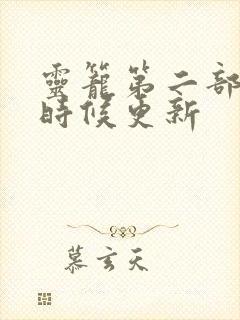 靈籠第二部
時候更新
慕玄天